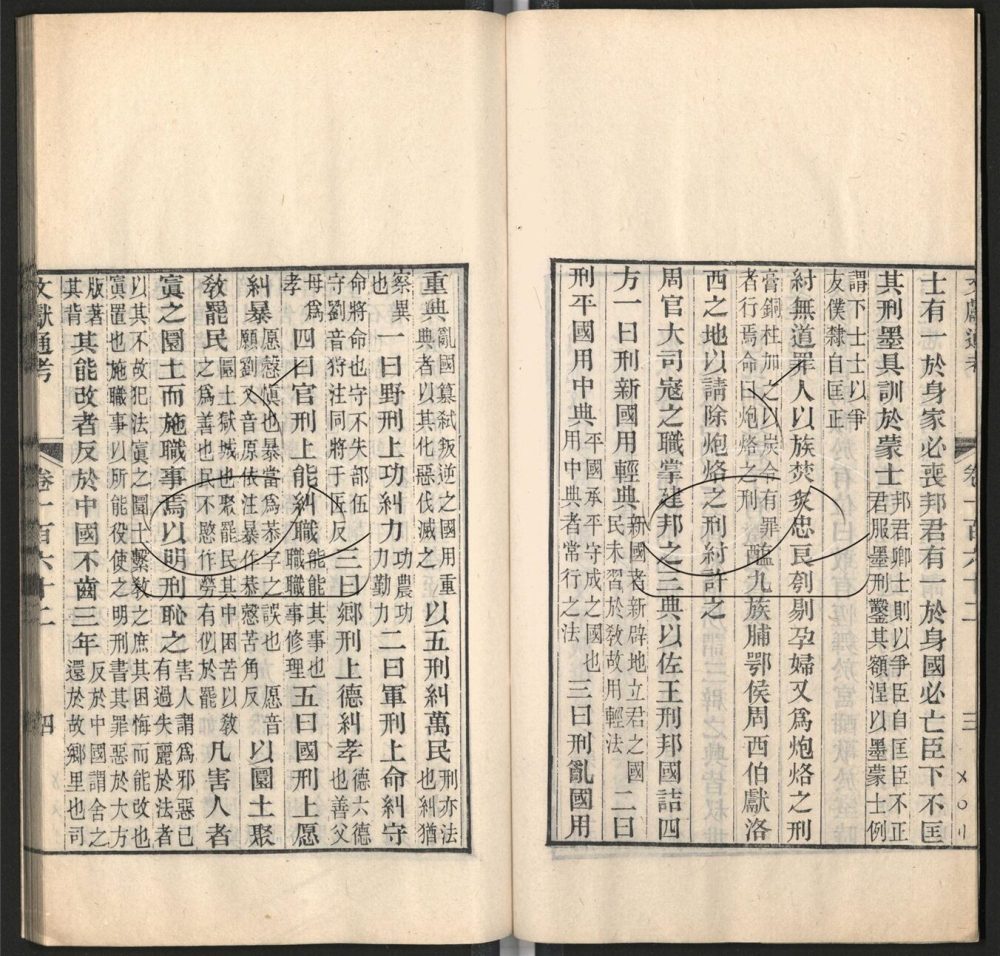 文獻通考 卷一百六十二 三
士有一於身家必喪邦君有一於身國必亡臣下不匡
其刑墨具訓於蒙士邦君卿士則以爭臣自匡臣不正君服墨刑鑿其頟涅以墨蒙士例
謂下士士以爭友僕隸自匡正
紂無道罪人以族焚炙忠良刳剔孕婦又爲炮烙之刑
膏銅柱加之以炭令有罪者行焉命曰炮烙之刑醢九族脯鄂侯周西伯獻洛
西之地以請除炮烙之刑紂許之
周官大司寇之職掌建邦之三典以佐王刑邦國詰四
方一曰刑新國用輕典新國者新辟地立君之國民未習於敎故用輕法二曰
刑平國用中典平國承平守成之國也用中典者常行之法三曰刑亂國用
重典亂國簒弑叛逆之國用重典者以其化惡伐滅之以五刑糾萬民刑亦法也糾猶
察異也一曰野刑上功糾力功農功力勤力二曰軍刑上命糾守
命將命也守不失部伍守劉音狩注同將于匠反三曰鄉刑上德糾孝德六德也善父
母爲孝四曰官刑上能糾職能能其事也職職事修理五曰國刑上愿
糾暴愿慤愼也暴當爲恭字之誤也愿音願劉又音原依注暴作恭慤苦角反以圜土聚
敎罷民圜土獄城也聚罷民其中困苦以敎之爲善也民不愍作勞有似於罷凡害人者
寘之圜土而施職事焉以明刑恥之害人謂爲邪惡已有過失麗於法者
以其不故犯法寘之圜土繫敎之庶其困悔而能改也寘置也施職事以所能役使之明刑書其罪惡於大方
版著其背其能改者反於中國不齒三年反於中國謂舍之還於故鄉里也司
文獻通考 卷一百六十二 四